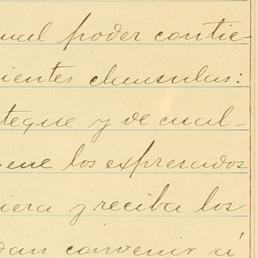 ual poder contie
ientes clausulas:
teque y de cual-
que los expresados
iera y reciba los
dan convenir á